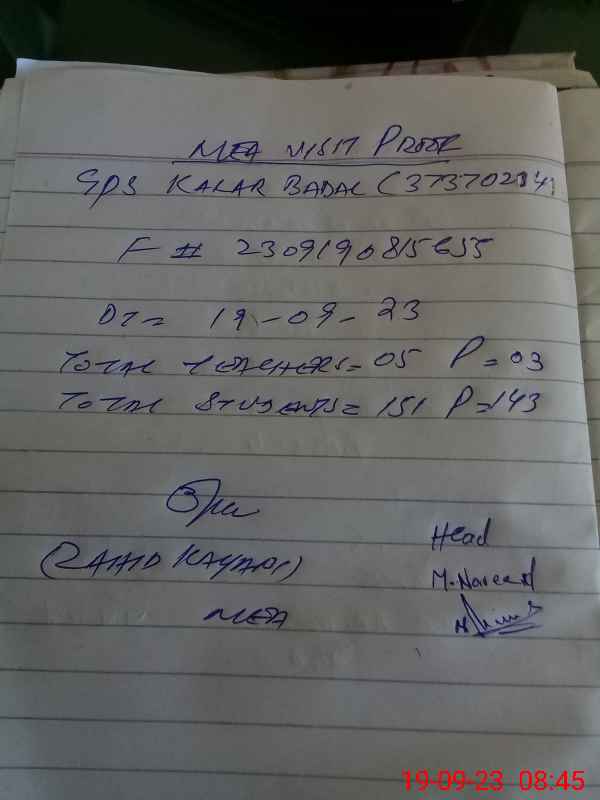 MEA VISIT PROOF
GPS KALAR BADAL (37370214)
F # 2309190815655
DT = 19-09-23
TOTAL TEACHERS = 05 P = 03
TOTAL STUDENTS = 151 P = 143
Head
(ZAHID KAYANI)
M. Naveed
MEA
19-09-23 08:45